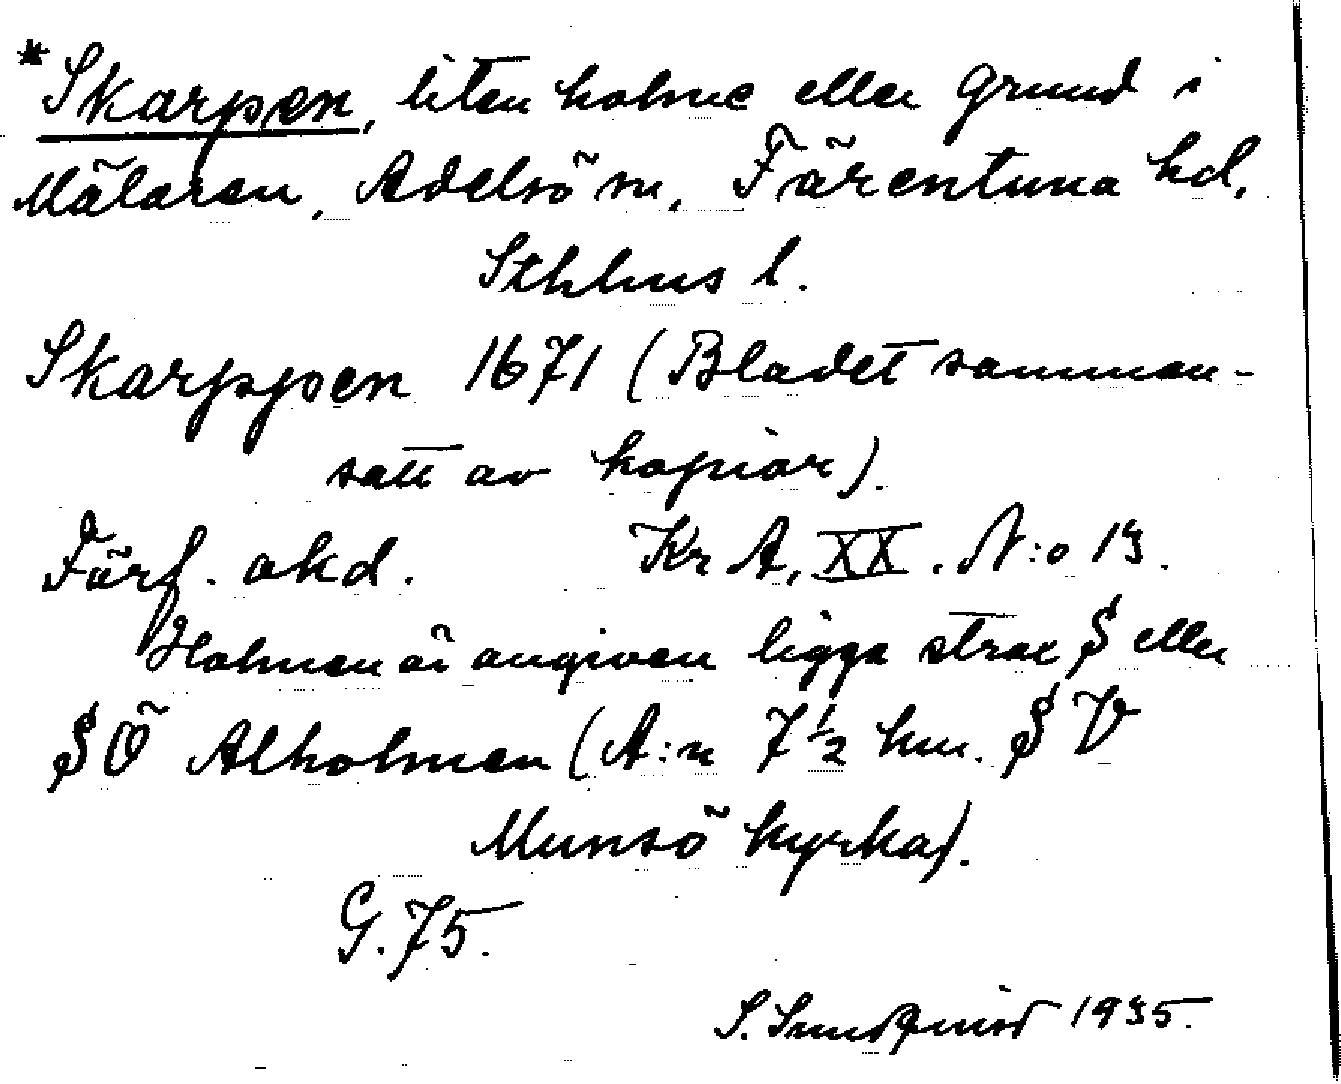 *Skarpen, liten holme eller grund i
Mälaren, Adelsö sn, Färentuna hd,
Sthlms l.
Skarppen 1671 (Bladet samman-
satt av kopior).
Förf. okd. Kr A, XX. N:o 13.
Holmen är angiven ligga strax S eller
SÖ Alholmen (A:n 7 1/2 km. SV
Munsö kyrka).
G. 75.
S. Sundqvist 1935.